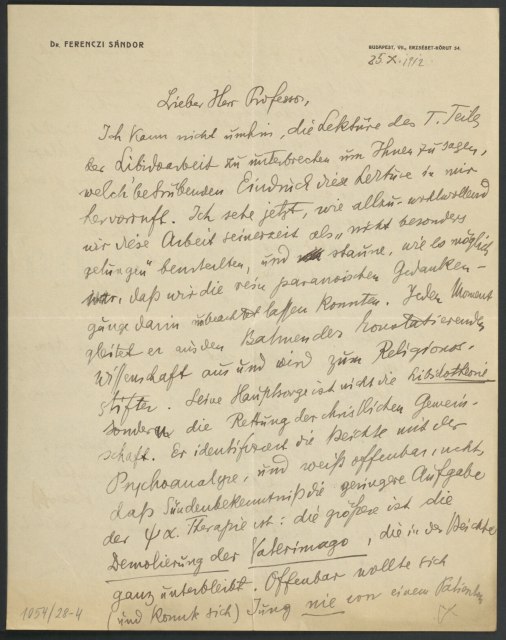 Dr. FERENCZI SÁNDOR
BUDAPEST, VII., ERZSÉBET-KÖRUT 54.
25. X. 1912
Lieber Herr Professor,
Ich kann nicht umhin, die Lektüre des I. Teiles
der Libidoarbeit zu unterbrechen um Ihnen zu sagen,
welch' betrübenden Eindruck diese Lektüre in mir
hervorruft. Ich sehe jetzt, wie allzu-wohlwollend
wir diese Arbeit seinerzeit als „nicht besonders
gelungen" beurteilten, und staune, wie es möglich
war, daß wir die rein paranoischen Gedanken-
gänge darin unbeachtet lassen konnten. Jeden Moment
gleitet er aus den Bahnen des Konstatierenden
Wissenschaft aus und wird zum Religions-
stifter. Seine Hauptsorge ist nicht die Libidotheorie
sondern die Rettung der christlichen Gemein-
schaft. Er identifiziert die Beichte mit der
Psychoanalyse, und weiß offenbar nicht,
daß Sündenbekenntniß die geringere Aufgabe
der ψα. Therapie ist: die größere ist die
Demolierung der Vaterimago, die in der Beichte
ganz unterbleibt. Offenbar wollte sich
(und konnte sich) Jung nie von einem Patienten
1054/28-4